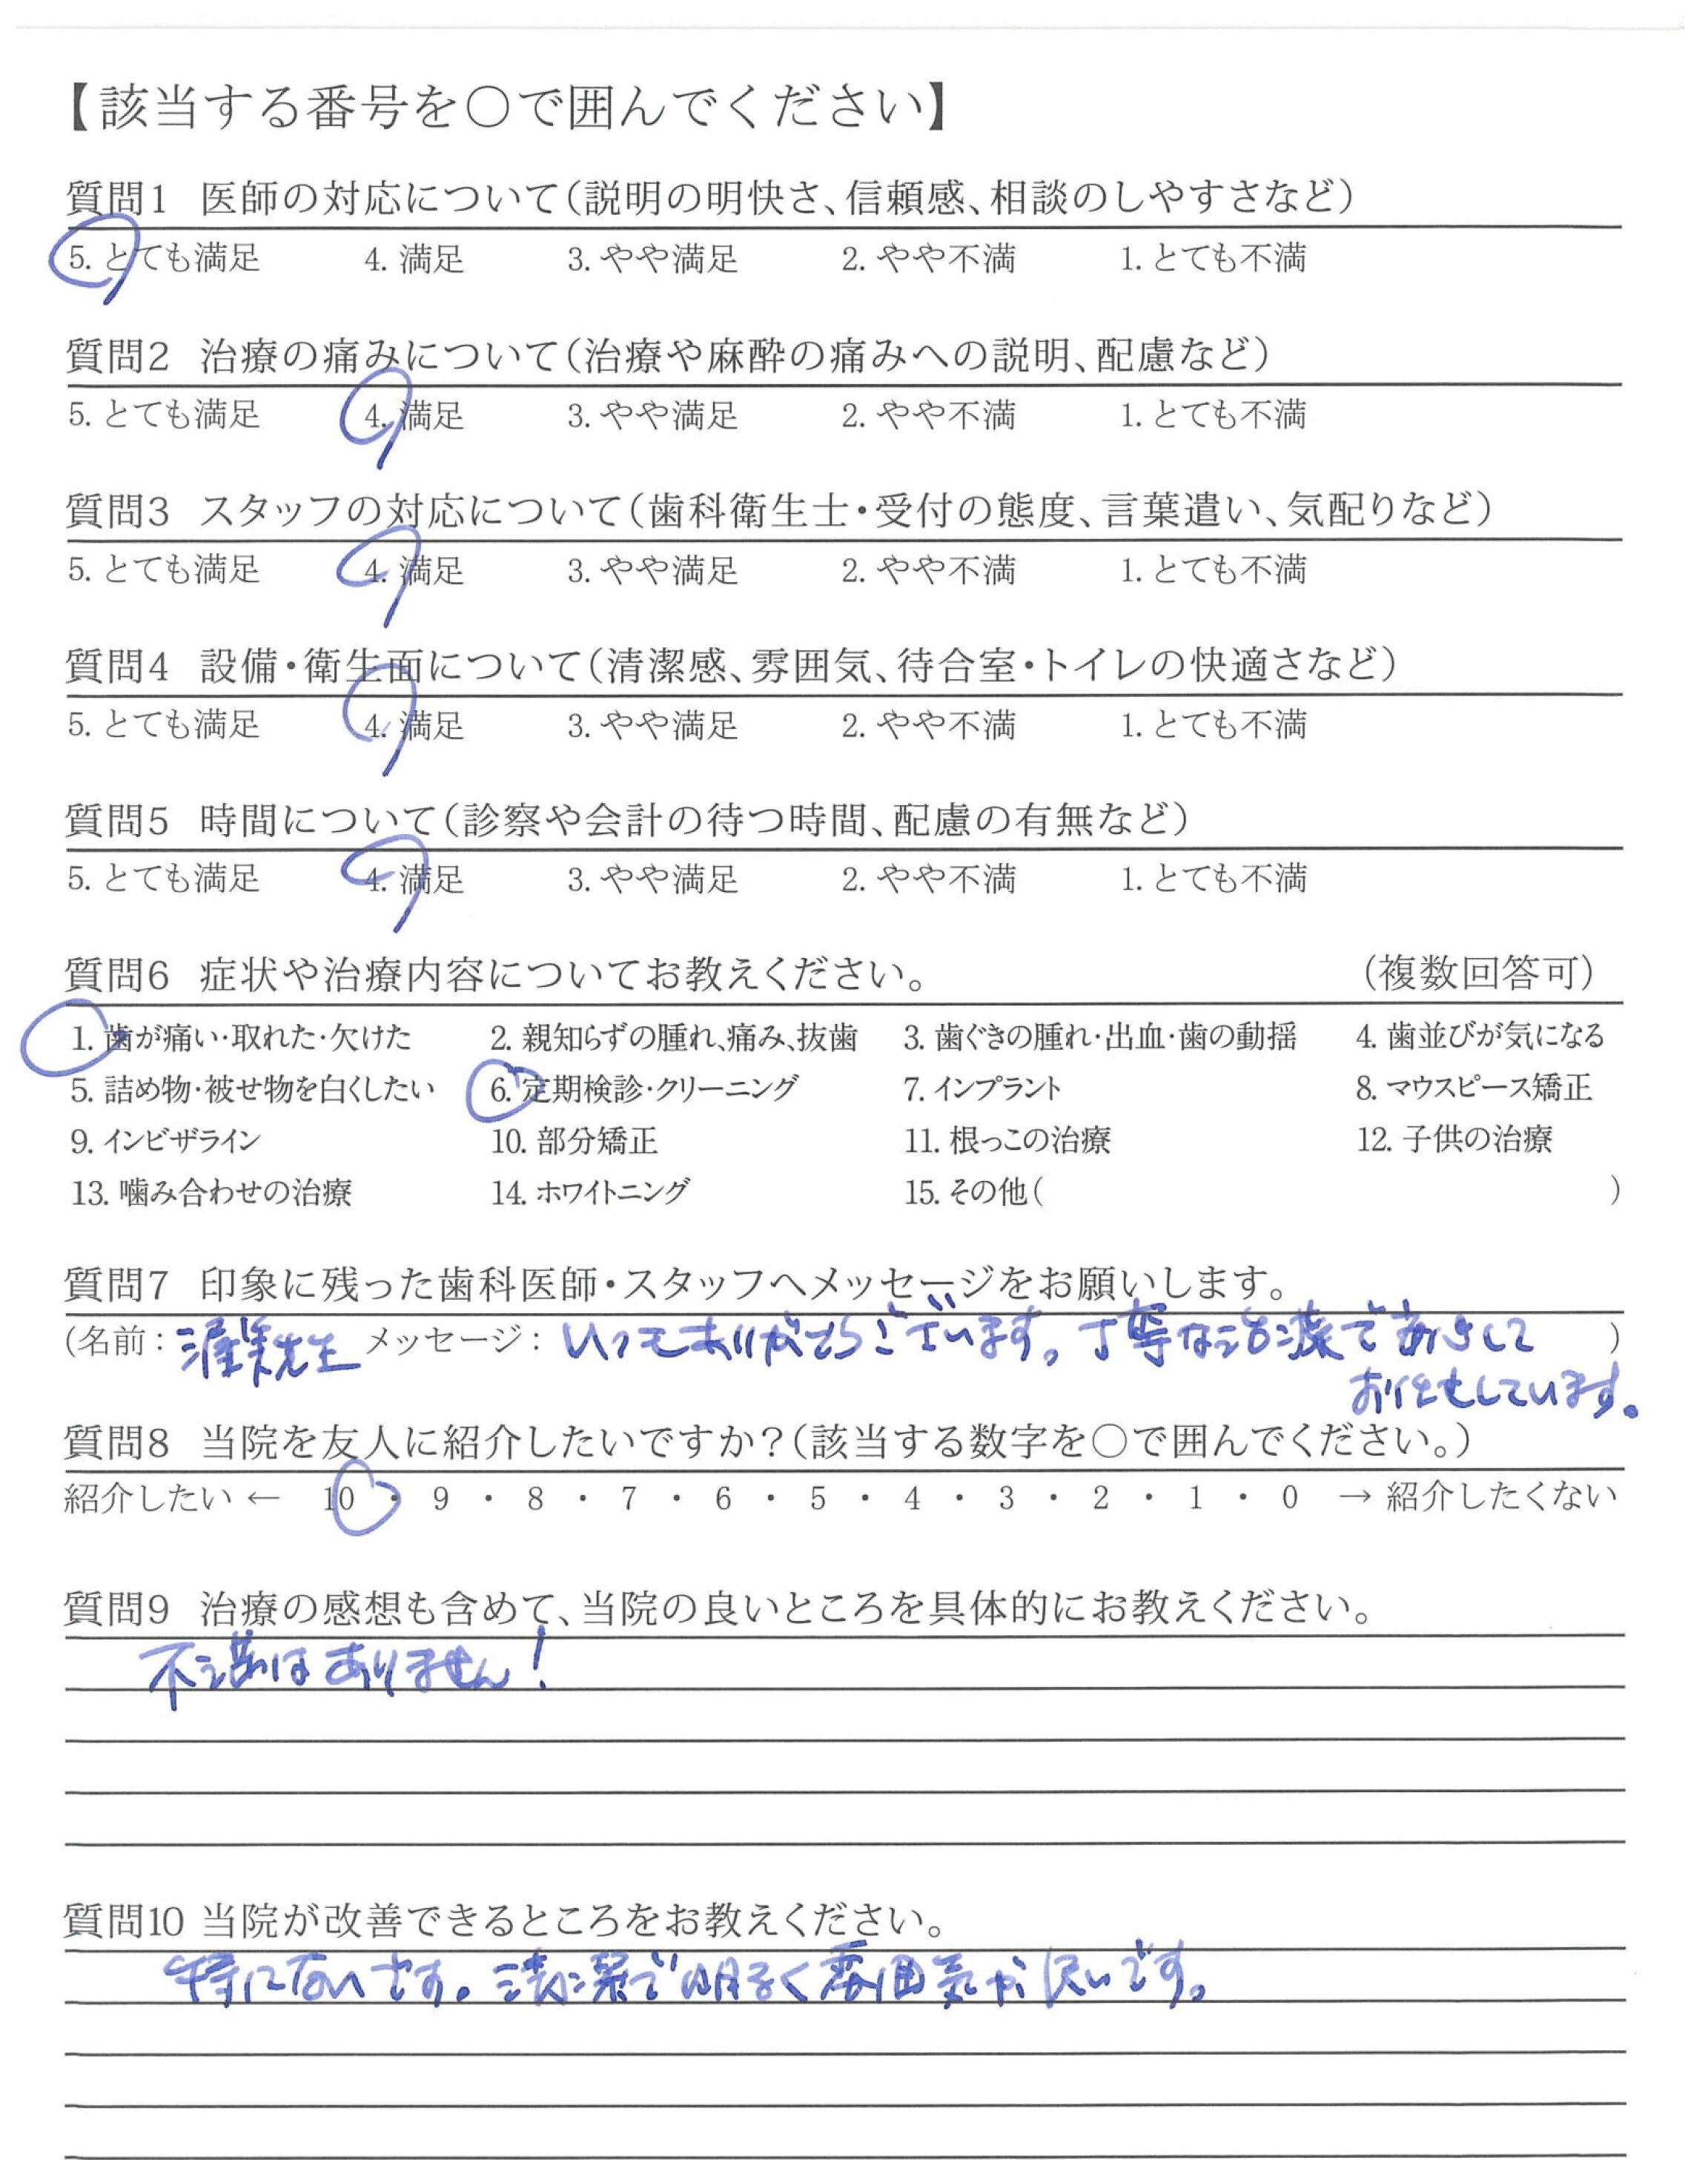 【該当する番号を○で囲んでください】
質問1 医師の対応について(説明の明快さ、信頼感、相談のしやすさなど)
5. とても満足 4. 満足 3. やや満足 2. やや不満 1. とても不満
質問2 治療の痛みについて(治療や麻酔の痛みへの説明、配慮など)
5. とても満足 4. 満足 3. やや満足 2. やや不満 1. とても不満
質問3 スタッフの対応について(歯科衛生士・受付の態度、言葉遣い、気配りなど)
5. とても満足 4. 満足 3. やや満足 2. やや不満 1. とても不満
質問4 設備・衛生面について(清潔感、雰囲気、待合室・トイレの快適さなど)
5. とても満足 4. 満足 3. やや満足 2. やや不満 1. とても不満
質問5 時間について(診察や会計の待つ時間、配慮の有無など)
5. とても満足 4. 満足 3. やや満足 2. やや不満 1. とても不満
質問6 症状や治療内容についてお教えください。 (複数回答可)
1. 歯が痛い・取れた・欠けた 2. 親知らずの腫れ、痛み、抜歯 3. 歯ぐきの腫れ・出血・歯の動揺 4. 歯並びが気になる
5. 詰め物・被せ物を白くしたい 6. 定期検診・クリーニング 7. インプラント 8. マウスピース矯正
9. インビザライン 10. 部分矯正 11. 根っこの治療 12. 子供の治療
13. 噛み合わせの治療 14. ホワイトニング 15. その他( )
質問7 印象に残った歯科医師・スタッフへメッセージをお願いします。
(名前: 先生 メッセージ: いつもありがとうございます。丁寧な治療で安心して )
お任せしています。
質問8 当院を友人に紹介したいですか?(該当する数字を○で囲んでください。)
紹介したい ← 10 ・ 9 ・ 8 ・ 7 ・ 6 ・ 5 ・ 4 ・ 3 ・ 2 ・ 1 ・ 0 → 紹介したくない
質問9 治療の感想も含めて、当院の良いところを具体的にお教えください。
不満はありません!
質問10 当院が改善できるところをお教えください。
特にないです。清潔で明るく雰囲気が良いです。